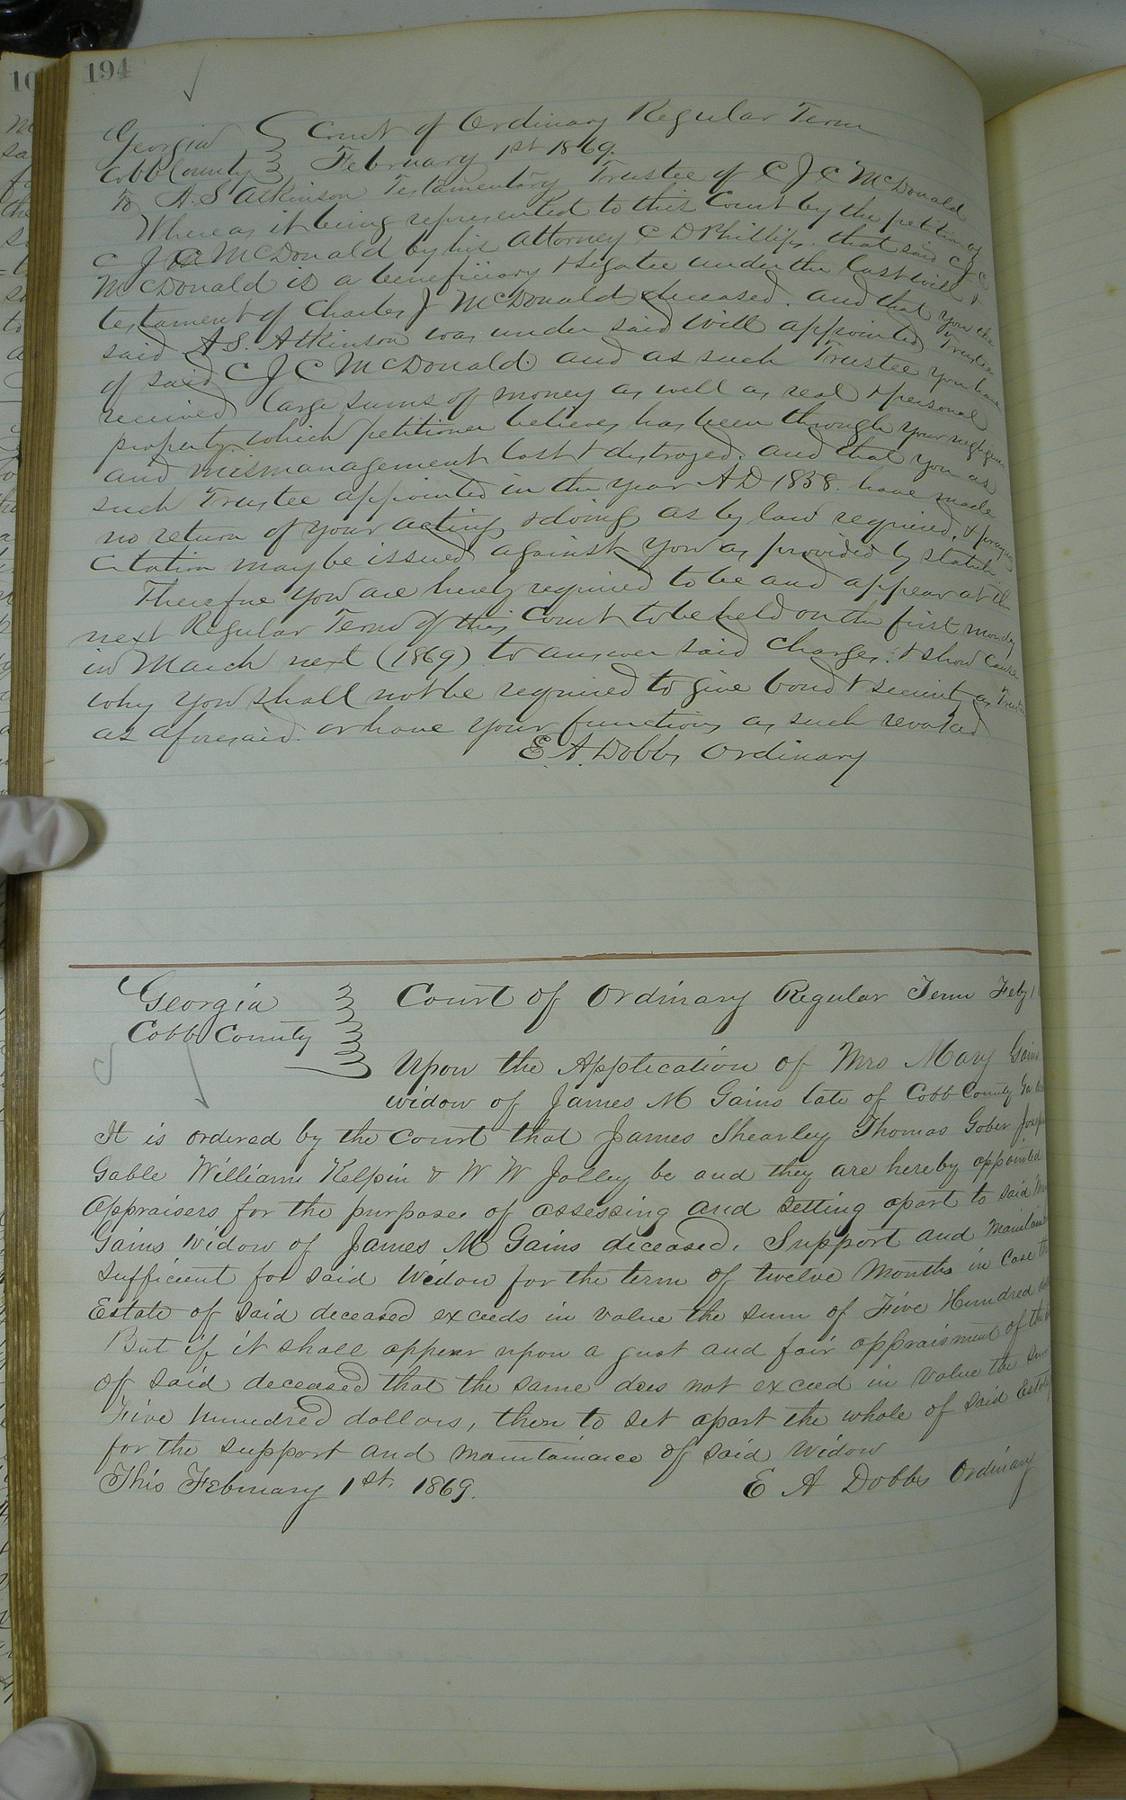 194
Georgia } Court of Ordinary Regular Term
Cobb County } February 1st 1869.
To A. S Atkinson Testamentary Trustee of C J C McDonald
Whereas it being represented to this Court by the petition of
C J C McDonald by his attorney C D Phillips. that said C J C
McDonald is a beneficiary & legatee under the last will &
testament of Charles J McDonald deceased. and that you the
said A S. Atkinson was under said Will appointed Trustee
of said C J C McDonald and as such Trustee you have
received large sums of money as well as real & personal
property which petitioner believes has been through your negligence
and mismanagement lost & destroyed. and that you as
such Trustee appointed in the year A D 1858. have made
no return of your acting & doings as by law required, & prays
Citation may be issued against you as provided by statute
Therefore you are hereby required to be and appear at the
next Regular Term of this Court to be held on the first monday
in March next (1869) to answer said charges. & show cause
why you shall not be required to give bond & security as Trustee
as aforesaid. or have your functions as such revoked
E. A. Dobbs Ordinary
Georgia } Court of Ordinary Regular Term Feby 1
Cobb County }
Upon the Application of Mrs Mary Gains
widow of James M Gains late of Cobb County Ga
It is ordered by the Court that James Shearley Thomas Gober Joseph
Gable William Kelpin & W W Jolley be and they are hereby appointed
appraisers for the purposes of assessing and setting apart to said Mrs
Gains widow of James M Gains deceased. Support and Maintain
sufficient for said Widow for the term of twelve Months in Case the
Estate of said deceased exceeds in value the sum of Five Hundred
But if it shall appear upon a just and fair appraisment of the
of said deceased that the same does not exceed in value the sum
Five hundred dollars, then to set apart the whole of said Estate
for the support and maintainace of said Widow
This February 1st. 1869. E A Dobbs Ordinary